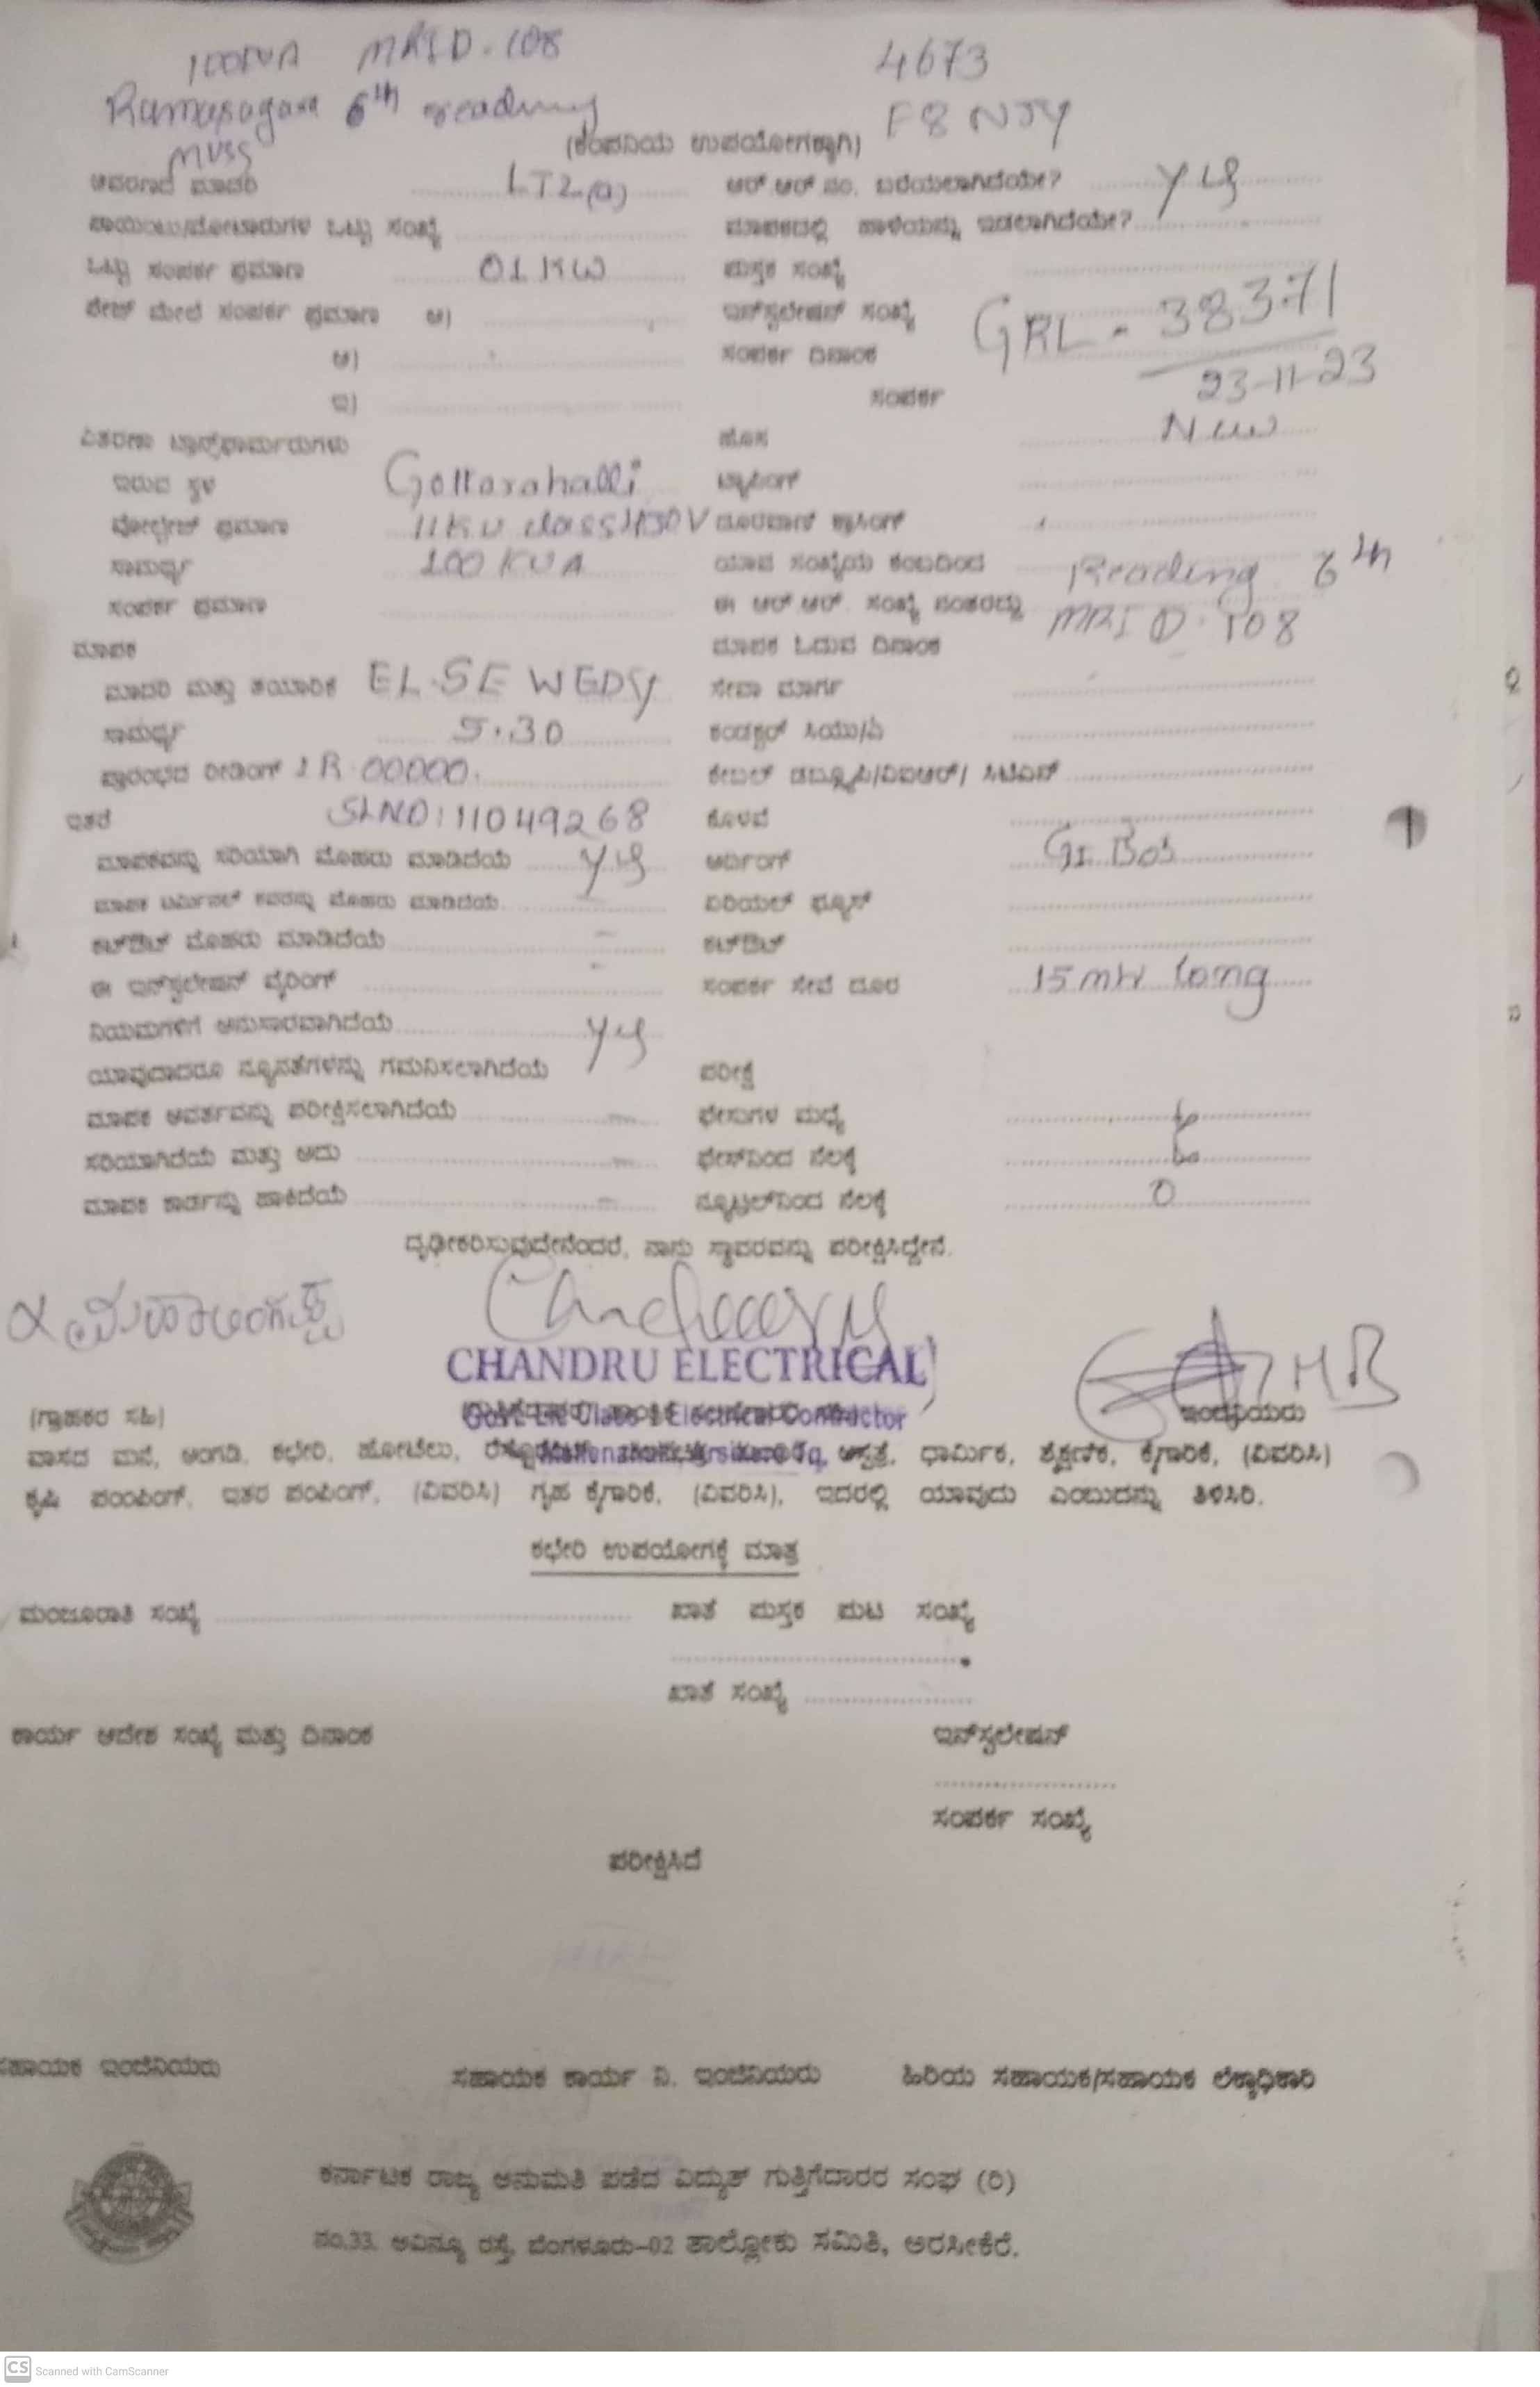 100KVA MRID-108 4673
Ramasagara 6th reading F8 NJY
MVSS (ಕಂಪನಿಯ ಉಪಯೋಗಕ್ಕಾಗಿ)
ಆವರಣದ ಮಾದರಿ LT2(a) ಆರ್ ಆರ್ ನಂ. ಬರೆಯಲಾಗಿದೆಯೇ? Yes
ಪಾಯಿಂಟು/ಮೋಟಾರುಗಳ ಒಟ್ಟು ಸಂಖ್ಯೆ ಮಾಪಕದಲ್ಲಿ ಹಾಳೆಯನ್ನು ಇಡಲಾಗಿದೆಯೇ?
ಒಟ್ಟು ಸಂಪರ್ಕ ಪ್ರಮಾಣ 01 KW ಪುಸ್ತಕ ಸಂಖ್ಯೆ
ಪೇಜ್ ಮೇಲೆ ಸಂಪರ್ಕ ಪ್ರಮಾಣ ಅ) ಇನ್‌ಸ್ಟಲೇಷನ್ ಸಂಖ್ಯೆ GRL - 38371
ಆ) ಸಂಪರ್ಕ ದಿನಾಂಕ 23-11-23
ಇ) ಸಂಪರ್ಕ
ವಿತರಣಾ ಟ್ರಾನ್ಸ್‌ಫಾರ್ಮರುಗಳು ಹೊಸ New
ಇರುವ ಸ್ಥಳ Gollarahalli ಟ್ಯಾಪಿಂಗ್
ವೋಲ್ಟೇಜ್ ಪ್ರಮಾಣ 11KV class/430V ದೂರವಾಣಿ ಕ್ರಾಸಿಂಗ್
ಸಾಮರ್ಥ್ಯ 100 KVA ಯಾವ ಸಂಖ್ಯೆಯ ಕಂಬದಿಂದ Reading 6th
ಸಂಪರ್ಕ ಪ್ರಮಾಣ ಈ ಆರ್ ಆರ್ ಸಂಖ್ಯೆ ನಂತರದ್ದು MRID-108
ಮಾಪಕ ಮಾಪಕ ಓದುವ ದಿನಾಂಕ
ಮಾದರಿ ಮತ್ತು ತಯಾರಿಕೆ EL-SEWEDY ಸೇವಾ ಮಾರ್ಗ
ಸಾಮರ್ಥ್ಯ 5-30 ಕಂಡಕ್ಟರ್ ಸಿಯು/ಎ
ಪ್ರಾರಂಭದ ರೀಡಿಂಗ್ IR 00000. ಕೇಬಲ್ ಡಬ್ಲ್ಯೂಪಿ/ವಿಐಆರ್/ ಸಿಟಿಎಸ್
ಇತರೆ SLNO:11049268 ಕೊಳವೆ
ಮಾಪಕವನ್ನು ಸರಿಯಾಗಿ ಮೊಹರು ಮಾಡಿದೆಯೆ Yes ಅರ್ಥಿಂಗ್
ಮಾಪಕ ಟರ್ಮಿನಲ್ ಕವರನ್ನು ಮೊಹರು ಮಾಡಿದೆಯೆ ಏರಿಯಲ್ ಫ್ಯೂಸ್
ಕಟ್‌ಔಟ್ ಮೊಹರು ಮಾಡಿದೆಯೆ ಕಟ್‌ಔಟ್
ಈ ಇನ್‌ಸ್ಟಲೇಷನ್ ವೈರಿಂಗ್ ಸಂಪರ್ಕ ಸೇವೆ ದೂರ 15 mtr long
ನಿಯಮಗಳಿಗೆ ಅನುಸಾರವಾಗಿದೆಯೆ Yes
ಯಾವುದಾದರೂ ನ್ಯೂನತೆಗಳನ್ನು ಗಮನಿಸಲಾಗಿದೆಯೆ ಪರೀಕ್ಷೆ
ಮಾಪಕ ಆವರ್ತವನ್ನು ಪರೀಕ್ಷಿಸಲಾಗಿದೆಯೆ ಫೇಸುಗಳ ಮಧ್ಯೆ
ಸರಿಯಾಗಿದೆಯೆ ಮತ್ತು ಅದು ಫೇಸ್‌ನಿಂದ ನೆಲಕ್ಕೆ
ಮಾಪಕ ಕಾರ್ಡನ್ನು ಹಾಕಿದೆಯೆ ನ್ಯೂಟ್ರಲ್‌ನಿಂದ ನೆಲಕ್ಕೆ 0
ದೃಢೀಕರಿಸುವುದೇನೆಂದರೆ, ನಾನು ಸ್ಥಾವರವನ್ನು ಪರೀಕ್ಷಿಸಿದ್ದೇನೆ.
CHANDRU ELECTRICAL
(ಗ್ರಾಹಕರ ಸಹಿ) Govt. Lic Class-1 Electrical Contractor ಇಂಜಿನಿಯರು
ವಾಸದ ಮನೆ, ಅಂಗಡಿ, ಕಛೇರಿ, ಹೋಟೆಲು, ಆಸ್ಪತ್ರೆ, ಧಾರ್ಮಿಕ, ಶೈಕ್ಷಣಿಕ, ಕೈಗಾರಿಕೆ, (ವಿವರಿಸಿ)
ಕೃಷಿ ಪಂಂಪಿಂಗ್, ಇತರ ಪಂಪಿಂಗ್, (ವಿವರಿಸಿ) ಗೃಹ ಕೈಗಾರಿಕೆ, (ವಿವರಿಸಿ), ಇದರಲ್ಲಿ ಯಾವುದು ಎಂಬುದನ್ನು ತಿಳಿಸಿರಿ.
ಕಛೇರಿ ಉಪಯೋಗಕ್ಕೆ ಮಾತ್ರ
ಮಂಜೂರಾತಿ ಸಂಖ್ಯೆ ಖಾತೆ ಪುಸ್ತಕ ಪುಟ ಸಂಖ್ಯೆ
ಖಾತೆ ಸಂಖ್ಯೆ
ಕಾರ್ಯ ಆದೇಶ ಸಂಖ್ಯೆ ಮತ್ತು ದಿನಾಂಕ ಇನ್‌ಸ್ಟಲೇಷನ್
ಸಂಪರ್ಕ ಸಂಖ್ಯೆ
ಪರೀಕ್ಷಿಸಿದೆ
ಸಹಾಯಕ ಇಂಜಿನಿಯರು ಸಹಾಯಕ ಕಾರ್ಯ ನಿ. ಇಂಜಿನಿಯರು ಹಿರಿಯ ಸಹಾಯಕ/ಸಹಾಯಕ ಲೆಕ್ಕಾಧಿಕಾರಿ
ಕರ್ನಾಟಕ ರಾಜ್ಯ ಅನುಮತಿ ಪಡೆದ ವಿದ್ಯುತ್ ಗುತ್ತಿಗೆದಾರರ ಸಂಘ (ರಿ)
ನಂ.33, ಅವಿನ್ಯೂ ರಸ್ತೆ, ಬೆಂಗಳೂರು-02 ತಾಲ್ಲೋಕು ಸಮಿತಿ, ಅರಸೀಕೆರೆ.
CS Scanned with CamScanner